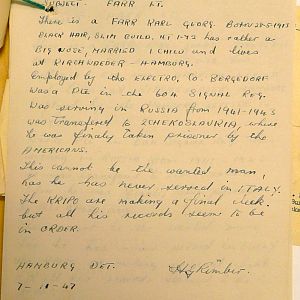 SUBJECT: FARR LT.
There is a FARR KARL GEORG. BORN 28-5-1913
BLACK HAIR, SLIM BUILD, HT. 1-73 has rather a
BIG NOSE, MARRIED 1 CHILD and lives
at KIRCHWAEDER - HAMBURG.
Employed by the ELECTRO, Co. BERGEDORF
Was a Pte in the 60th SIGNAL REG.
Was serving in RUSSIA from 1941-1943
was transferred to ZCHEKOSLAVRIA, where
he was finally taken prisoner by the
AMERICANS.
This cannot be the wanted man,
has he has never served in ITALY.
The KRIPO are making a final check.
but all his records seem to be
in ORDER.
HAMBURG DET.
7-11-47